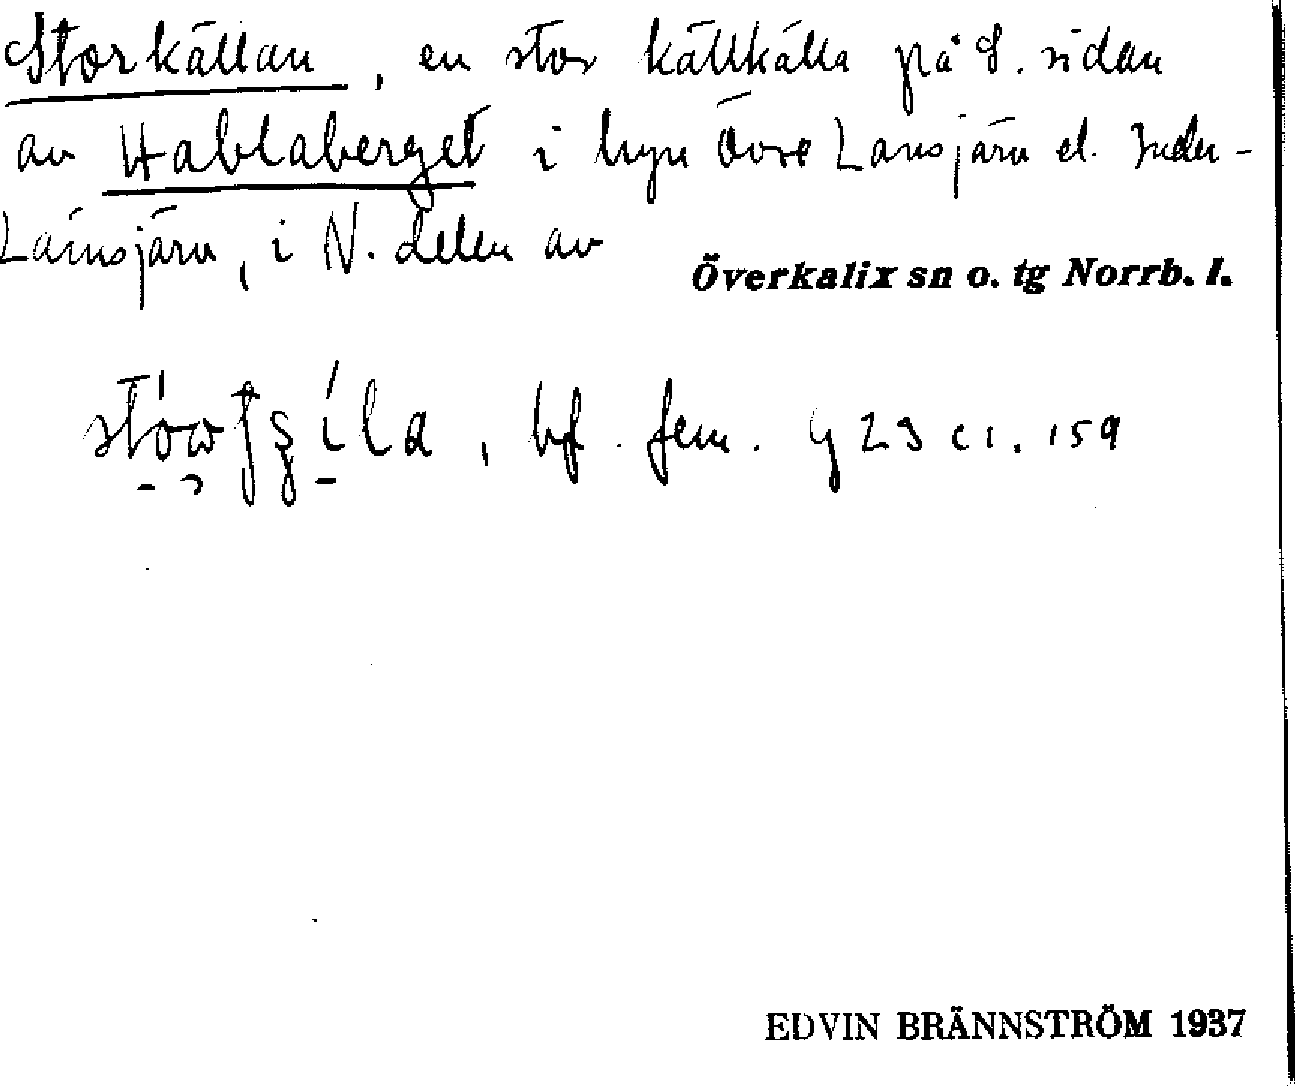 Storkällan, en stor kallkälla på S. sidan
av Hablaberget i byn Övre Lansjärv el. Inder-
Lansjärv, i N. delen av
Överkalix sn o. tg Norrb. l.
, bf. fem. 159
EDVIN BRÄNNSTRÖM 1937